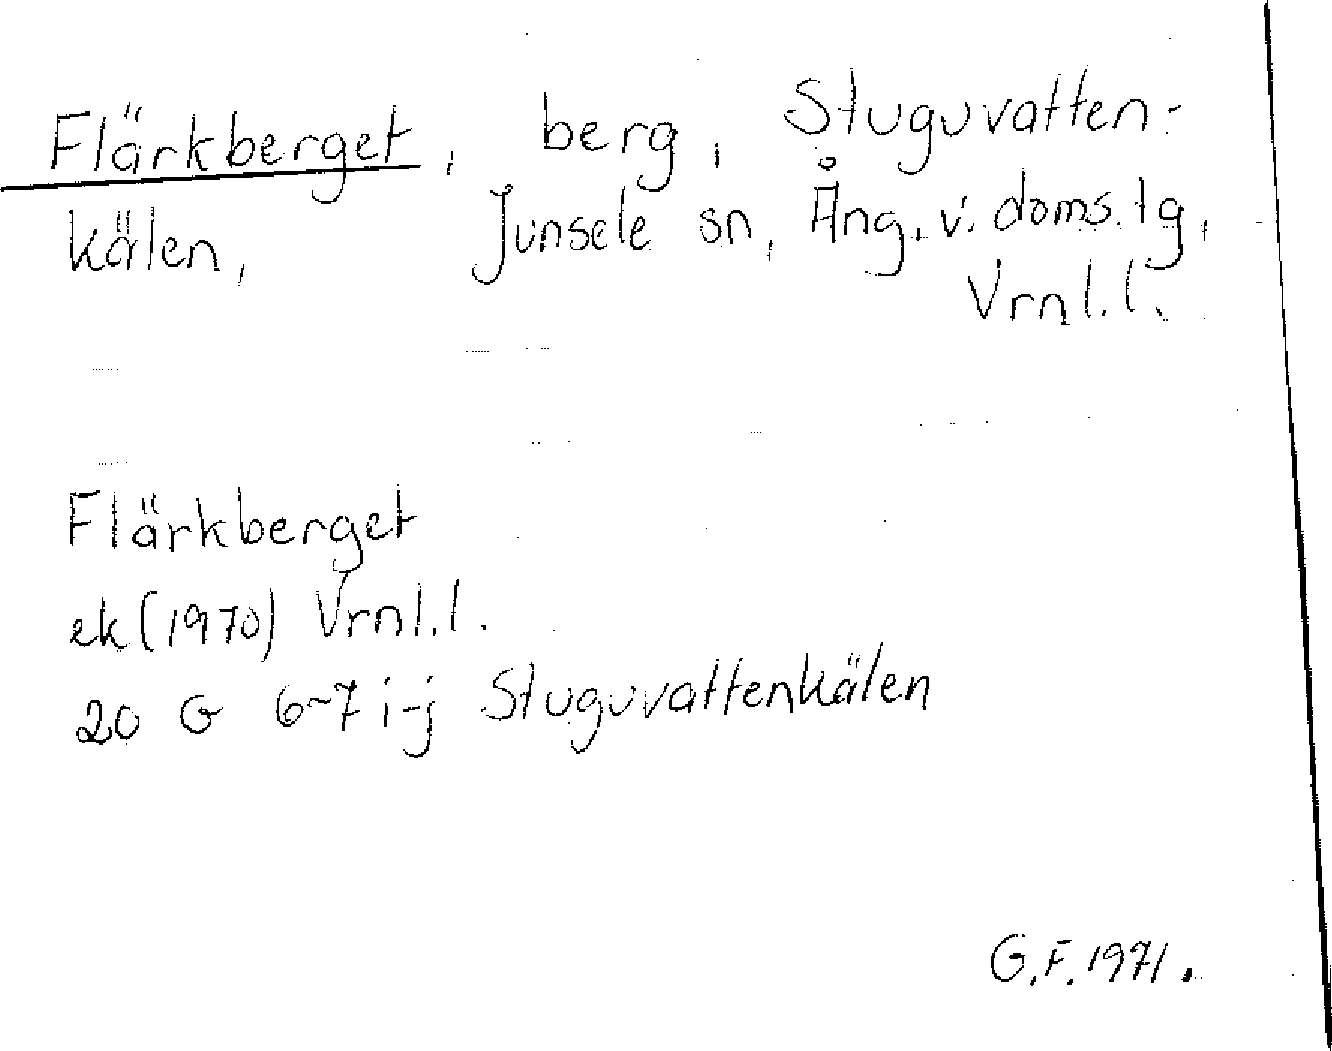 Flärkberget, berg, Stuguvatten-
kälen, Junsele sn, Ång. v. doms. tg,
Vrnl.l.
Flärkberget
ek (1970) Vrnl.l.
20 G 6-7 i-j Stuguvattenkälen
G.F. 1971.